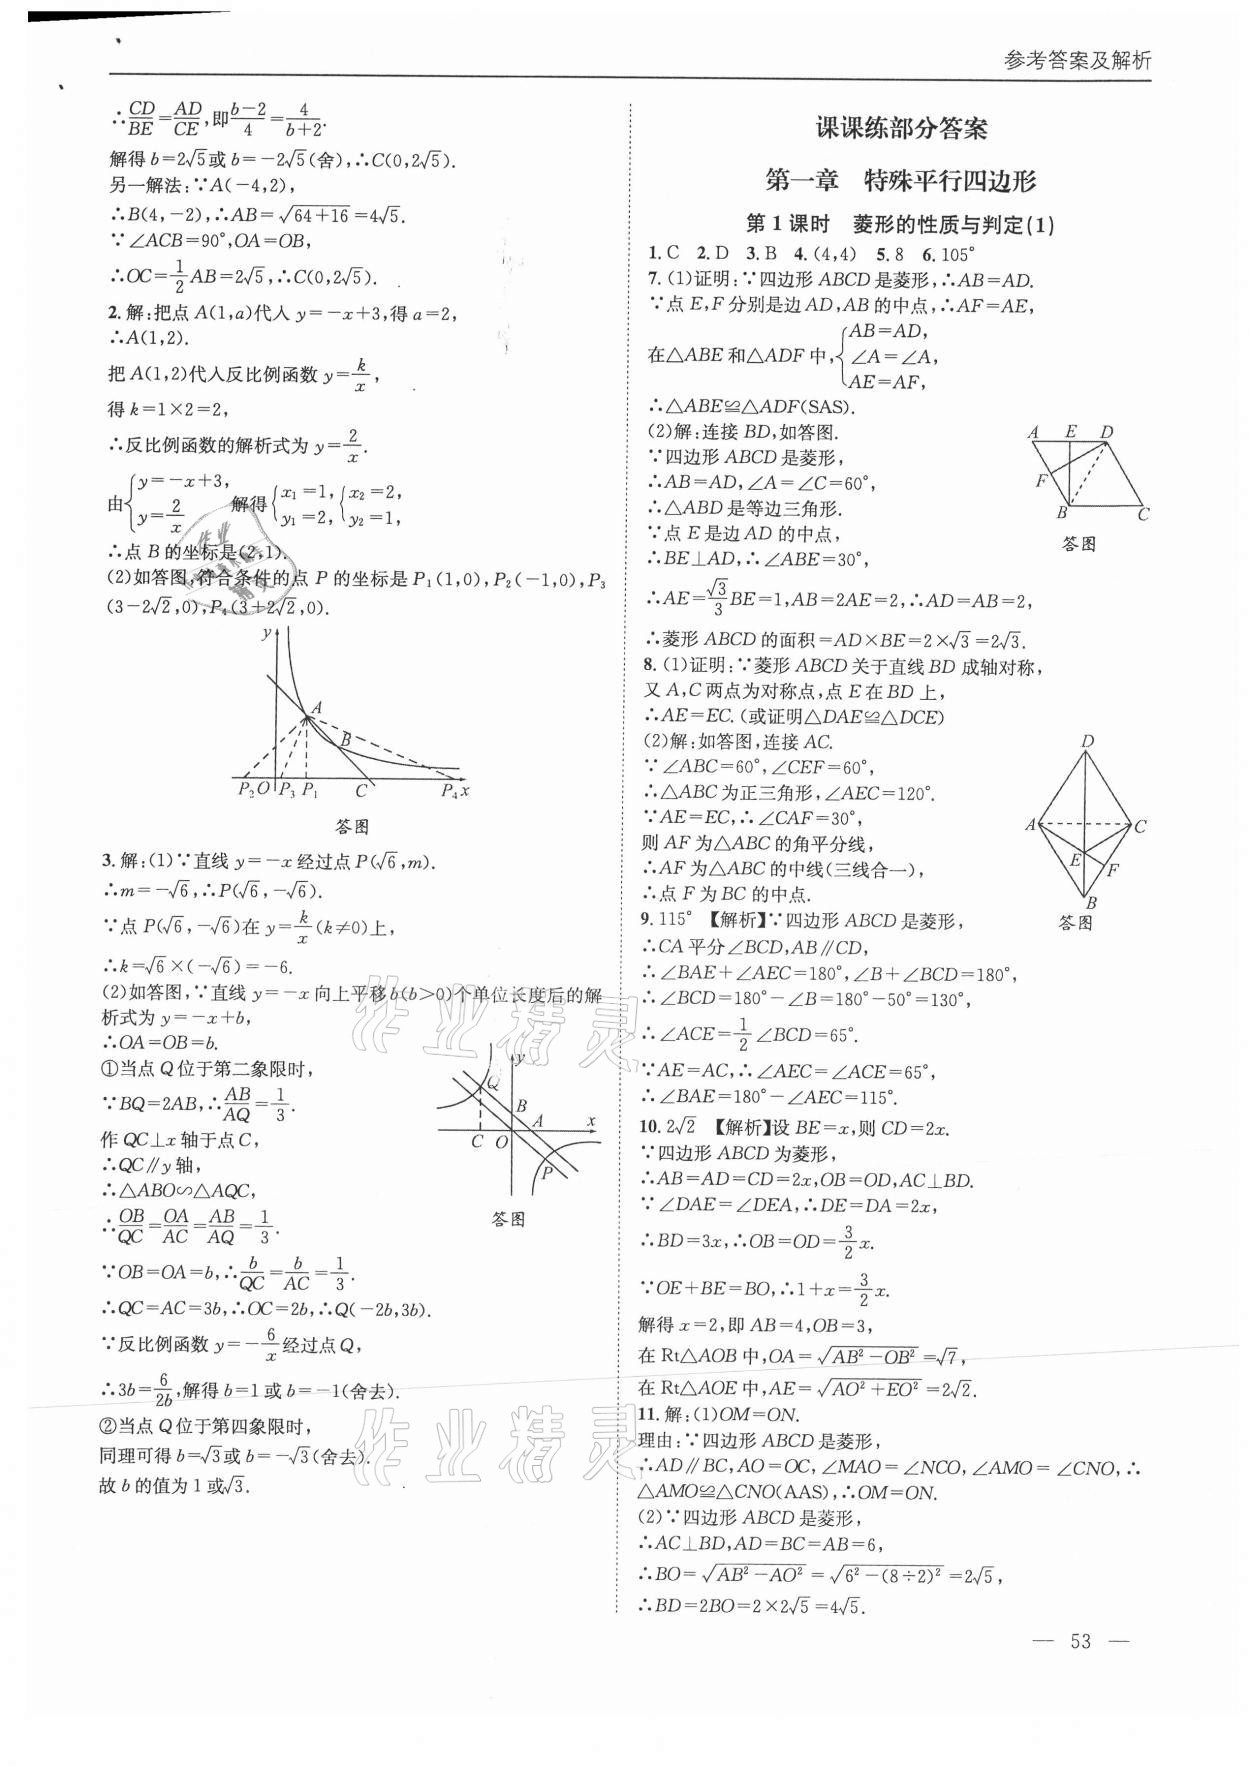 参考答案及解析
∴CD/BE=AD/CE,即(b-2)/4=4/(b+2).
解得b=2√5或b=-2√5(舍),∴C(0,2√5).
另一解法:∵A(-4,2),
∴B(4,-2),∴AB=√(64+16)=4√5.
∵∠ACB=90°,OA=OB,
∴OC=1/2AB=2√5,∴C(0,2√5).
2.解:把点A(1,a)代入y=-x+3,得a=2,
∴A(1,2).
把A(1,2)代入反比例函数y=k/x,
得k=1×2=2,
∴反比例函数的解析式为y=2/x.
由{y=-x+3, y=2/x 解得{x₁=1, y₁=2, {x₂=2, y₂=1,
∴点B的坐标是(2,1).
(2)如答图,符合条件的点P的坐标是P₁(1,0),P₂(-1,0),P₃
(3-2√2,0),P₄(3+2√2,0).
y
A
B
P₂ O P₃ P₁ C P₄ x
答图
3.解:(1)∵直线y=-x经过点P(√6,m).
∴m=-√6,∴P(√6,-√6).
∵点P(√6,-√6)在y=k/x(k≠0)上,
∴k=√6×(-√6)=-6.
(2)如答图,∵直线y=-x向上平移b(b>0)个单位长度后的解
析式为y=-x+b,
∴OA=OB=b.
①当点Q位于第二象限时,
∵BQ=2AB,∴AB/AQ=1/3.
作QC⊥x轴于点C,
∴QC∥y轴,
∴△ABO∽△AQC,
∴OB/QC=OA/AC=AB/AQ=1/3.
∵OB=OA=b,∴b/QC=b/AC=1/3.
∴QC=AC=3b,∴OC=2b,∴Q(-2b,3b).
∵反比例函数y=-6/x经过点Q,
∴3b=6/2b,解得b=1或b=-1(舍去).
②当点Q位于第四象限时,
同理可得b=√3或b=-√3(舍去).
故b的值为1或√3.
y
Q
B
A
x
C O
P
答图
课课练部分答案
第一章 特殊平行四边形
第1课时 菱形的性质与判定(1)
1.C 2.D 3.B 4.(4,4) 5.8 6.105°
7.(1)证明:∵四边形ABCD是菱形,∴AB=AD.
∵点E,F分别是边AD,AB的中点,∴AF=AE,
在△ABE和△ADF中,{AB=AD, ∠A=∠A, AE=AF,
∴△ABE≌△ADF(SAS).
(2)解:连接BD,如答图.
∵四边形ABCD是菱形,
∴AB=AD,∠A=∠C=60°,
∴△ABD是等边三角形.
∵点E是边AD的中点,
∴BE⊥AD,∴∠ABE=30°,
∴AE=√3/3BE=1,AB=2AE=2,∴AD=AB=2,
∴菱形ABCD的面积=AD×BE=2×√3=2√3.
A E D
F
B C
答图
8.(1)证明:∵菱形ABCD关于直线BD成轴对称,
又A,C两点为对称点,点E在BD上,
∴AE=EC.(或证明△DAE≌△DCE)
(2)解:如答图,连接AC.
∵∠ABC=60°,∠CEF=60°,
∴△ABC为正三角形,∠AEC=120°.
∵AE=EC,∴∠CAF=30°,
则AF为△ABC的角平分线,
∴AF为△ABC的中线(三线合一),
∴点F为BC的中点.
D
A C
E
F
B
答图
9.115° 【解析】∵四边形ABCD是菱形,
∴CA平分∠BCD,AB∥CD,
∴∠BAE+∠AEC=180°,∠B+∠BCD=180°,
∴∠BCD=180°-∠B=180°-50°=130°,
∴∠ACE=1/2∠BCD=65°.
∵AE=AC,∴∠AEC=∠ACE=65°,
∴∠BAE=180°-∠AEC=115°.
10.2√2 【解析】设BE=x,则CD=2x.
∵四边形ABCD为菱形,
∴AB=AD=CD=2x,OB=OD,AC⊥BD.
∵∠DAE=∠DEA,∴DE=DA=2x,
∴BD=3x,∴OB=OD=3/2x.
∵OE+BE=BO,∴1+x=3/2x.
解得x=2,即AB=4,OB=3,
在Rt△AOB中,OA=√(AB²-OB²)=√7,
在Rt△AOE中,AE=√(AO²+EO²)=2√2.
11.解:(1)OM=ON.
理由:∵四边形ABCD是菱形,
∴AD∥BC,AO=OC,∠MAO=∠NCO,∠AMO=∠CNO,∴
△AMO≌△CNO(AAS),∴OM=ON.
(2)∵四边形ABCD是菱形,
∴AC⊥BD,AD=BC=AB=6,
∴BO=√(AB²-AO²)=√(6²-(8÷2)²)=2√5,
∴BD=2BO=2×2√5=4√5.
作业精灵
作业精灵
— 53 —